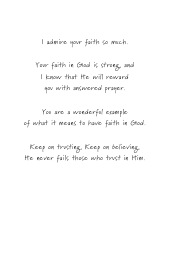 I admire your faith so much.
Your faith in God is strong, and
I know that He will reward
you with answered prayer.
You are a wonderful example
of what it means to have faith in God.
Keep on trusting, Keep on believing,
He never fails those who trust in Him.